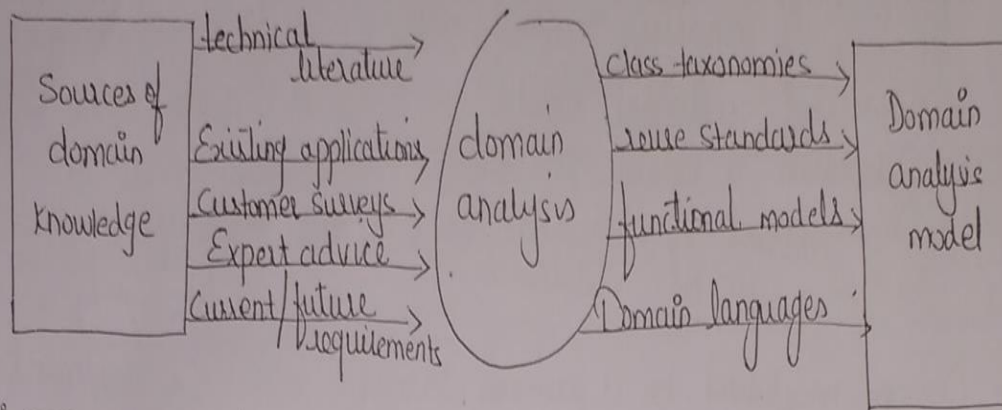 Sources of
domain
knowledge
technical
literature
Existing applications
Customer surveys
Expert advice
Current/future
requirements
domain
analysis
class taxonomies
reuse standards
functional models
Domain languages
Domain
analysis
model